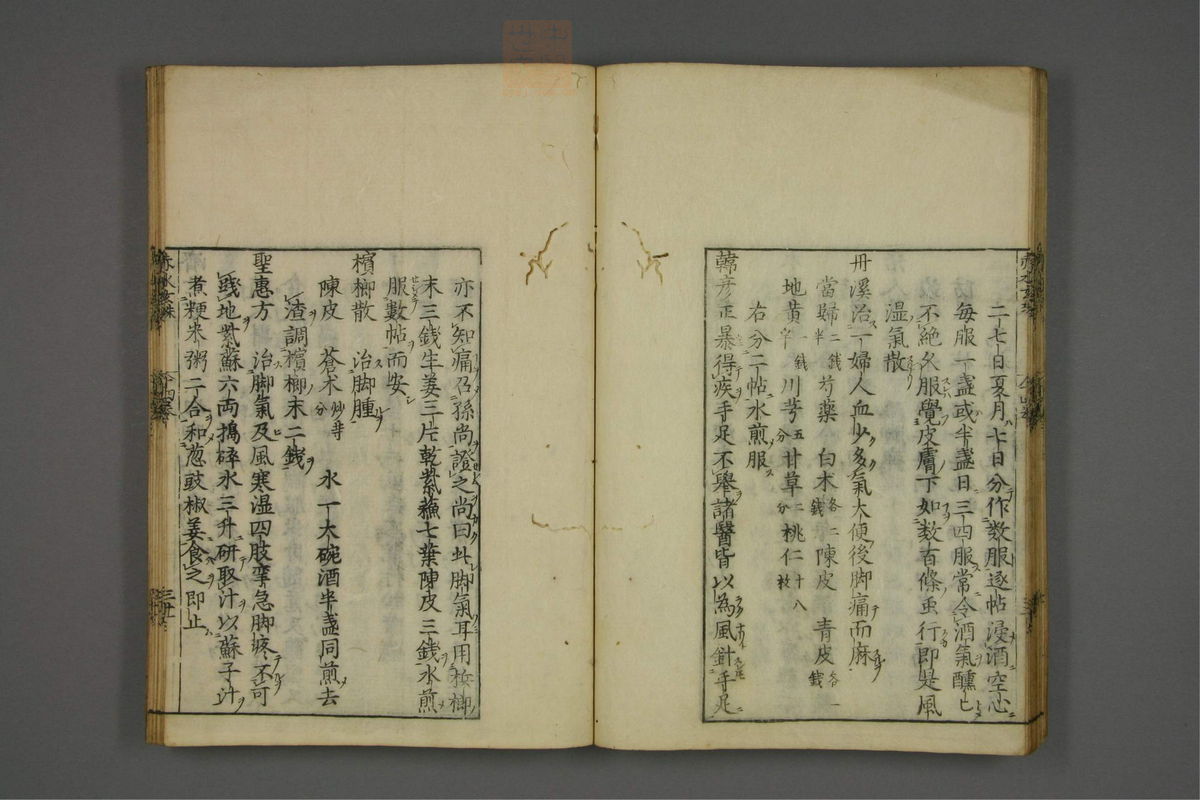 二七日夏月七日分作数服逐帖浸酒空心
每服一盞或半盞日三四服常令酒氣醺々
不絶久服覺皮膚下如数百條虫行即是風
湿氣散
丹溪治一婦人血少多氣大便後脚痛而麻
當歸二錢半芍藥一錢白木各二錢陳皮青皮各一錢
地黄一錢半川芎五分甘草二分桃仁十八枚
右分二帖水煎服
韓彦正暴得疾手足不舉諸醫皆以為風針手足
亦不知痛乃孫尚證之尚曰此脚氣耳用檳榔
末三錢生姜三片乾紫蘓七葉陳皮三錢水煎
服數帖而安
檳榔散 治脚腫
陳皮 蒼术炒等分 水一大碗酒半盞同煎去
渣調檳榔末二錢
聖惠方 治脚氣及風寒湿四肢攣急脚疼不可
踐地紫蘇六両搗碎水三升研取汁以蘇子汁
煮粳米粥二合和葱豉椒姜食之即止